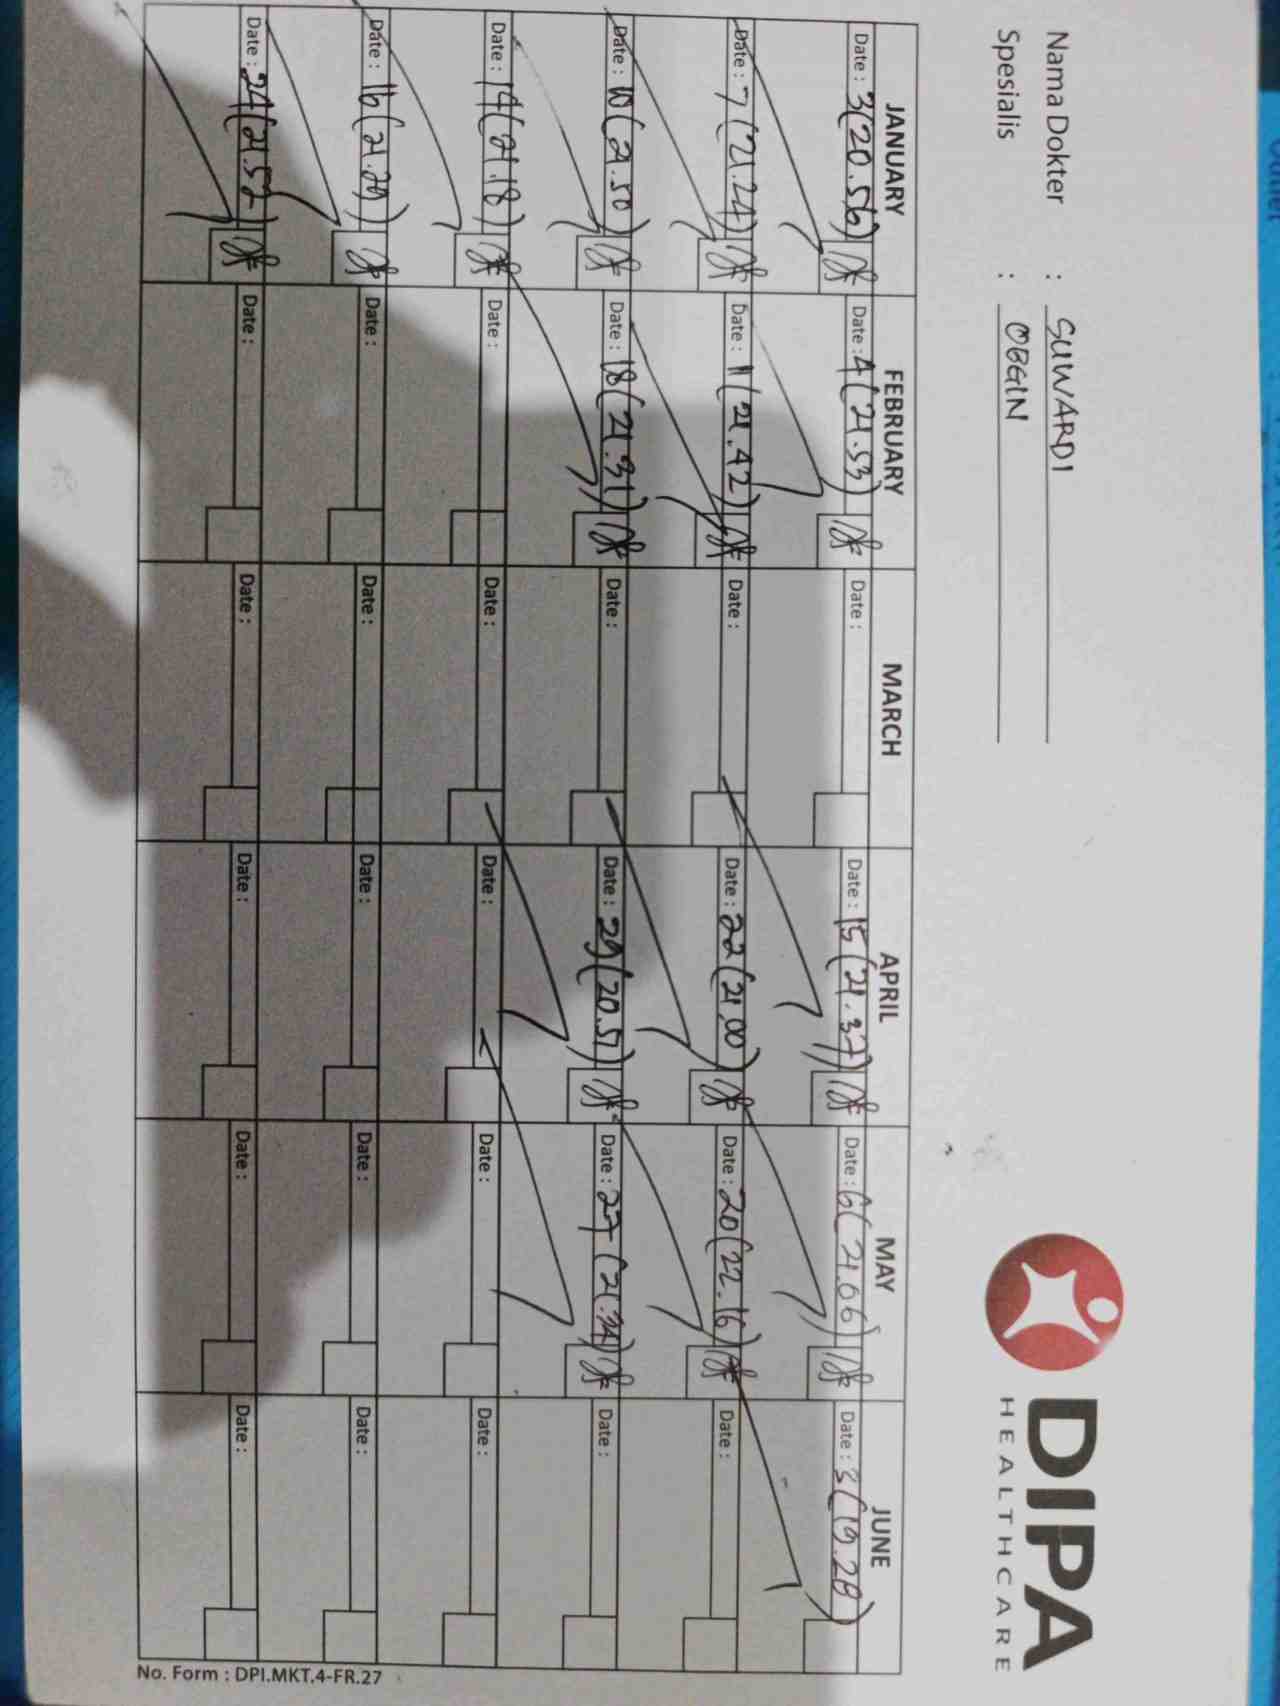 Nama Dokter : SUWARDI
Spesialis : OBGIN
DIPA
HEALTHCARE
JANUARY FEBRUARY MARCH APRIL MAY JUNE
Date : 3 (20.56) Date : 4 (21.53) Date : Date : 15 (21.37) Date : 6 (21.06) Date : 3 (19.28)
Date : 7 (21.24) Date : 11 (21.42) Date : Date : 22 (21.00) Date : 20 (22.16) Date :
Date : 10 (21.50) Date : 18 (21.31) Date : Date : 29 (20.51) Date : 27 (21.34) Date :
Date : 14 (21.18) Date : Date : Date : Date : Date :
Date : 16 (21.29) Date : Date : Date : Date : Date :
Date : 24 (21.52) Date : Date : Date : Date : Date :
No. Form : DPI.MKT.4-FR.27